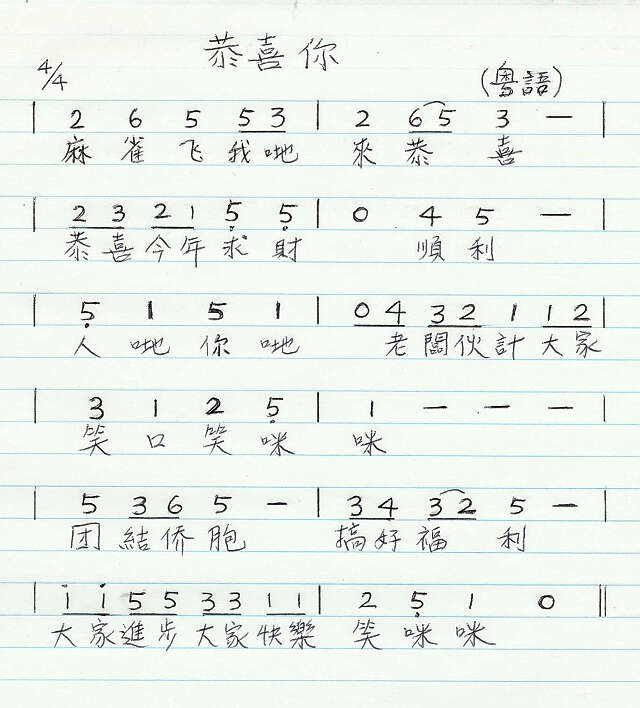 恭喜你
4/4 (粵語)
| 2 6 5 5 3 | 2 6 5 3 — |
麻雀飞我哋 來恭喜
| 2 3 2 1 5̣ 5̣ | 0 4 5 — |
恭喜今年求財 順利
| 5̣ 1 5 1 | 0 4 3 2 1 1 2 |
人哋你哋 老闆伙計大家
| 3 1 2 5̣ | 1 — — — |
笑口笑咪 咪
| 5 3 6 5 — | 3 4 3 2 5 — |
团結侨胞 搞好福利
| i i 5 5 3 3 1 1 | 2 5̣ 1 0 ||
大家進步大家快樂 笑咪咪